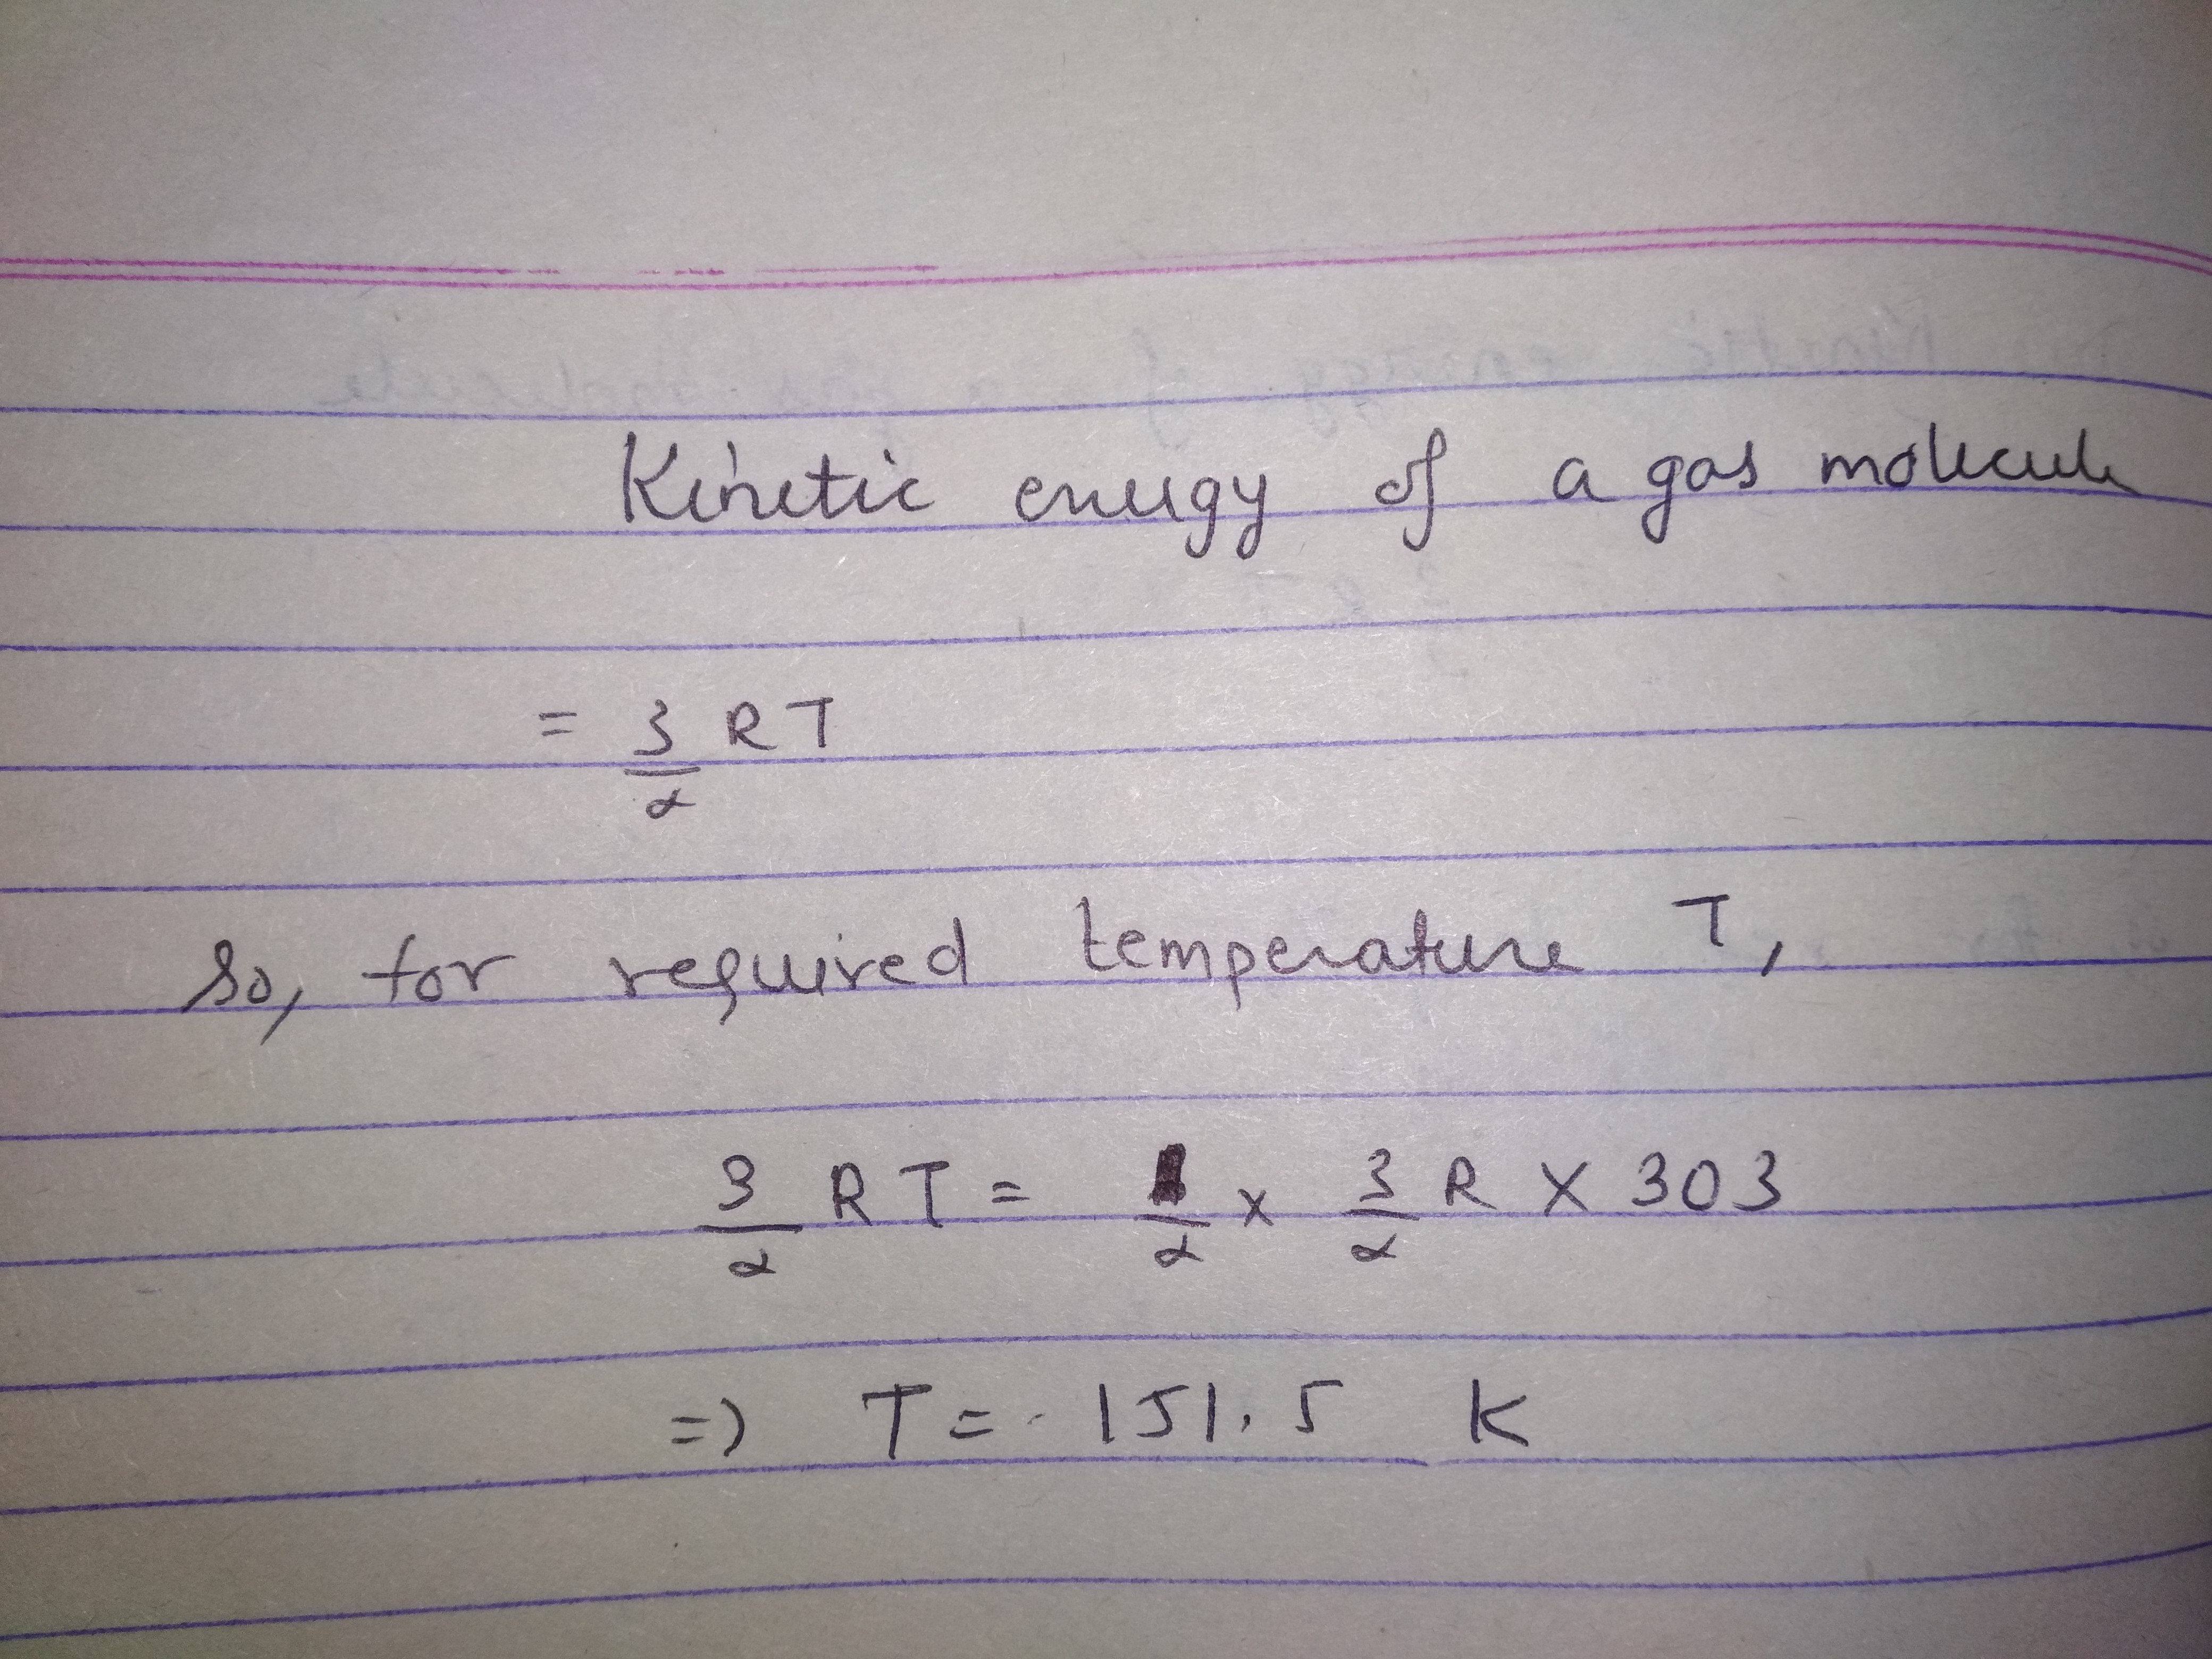 Kinetic energy of a gas molecule
= 3/2 RT
So, for required temperature T,
3/2 RT = 1/2 x 3/2 R X 303
=) T = 151.5 K